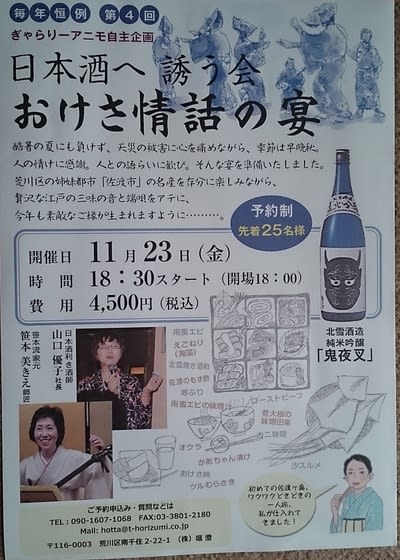 毎年恒例 第4回
ぎゃらりーアニモ自主企画
日本酒へ誘う会
おけさ情話の宴
酷暑の夏にも負けず、天災の被害に心を痛めながら、季節は早晩秋。
人の情けに感謝。人との語らいに歓び。そんな宴を準備いたしました。
荒川区の姉妹都市「佐渡市」の名産を存分に楽しみながら、
贅沢な江戸の三味の音と端唄をアテに、
今年も素敵なご縁が生まれますように………。
予約制
先着25名様
開催日 11月23日(金)
時間 18:30スタート(開場18:00)
費用 4,500円(税込)
北雪酒造
純米吟醸
「鬼夜叉」
日本酒利き酒師
山口優子社長
笹本流家元
笹本美きえ師匠
南蛮エビ
えごねり
(海藻)
北雪焼き酒粕
佐渡のもず酢
寒ぶり
南蛮エビの味噌汁
ローストビーフ
煮大根の
味噌田楽
オクラ
かあちゃん漬け
おけさ柿
ツルむらさき
一夜スルメ
初めての佐渡ヶ島。
ワクワクどきどきの
一人旅。
私が仕入れて
きました!
ご予約申込み・質問などは
TEL:090-1607-1068 FAX:03-3801-2180
Mail:hotta@t-horizumi.co.jp
〒116-0003 荒川区南千住2-22-1 (株)堀澄